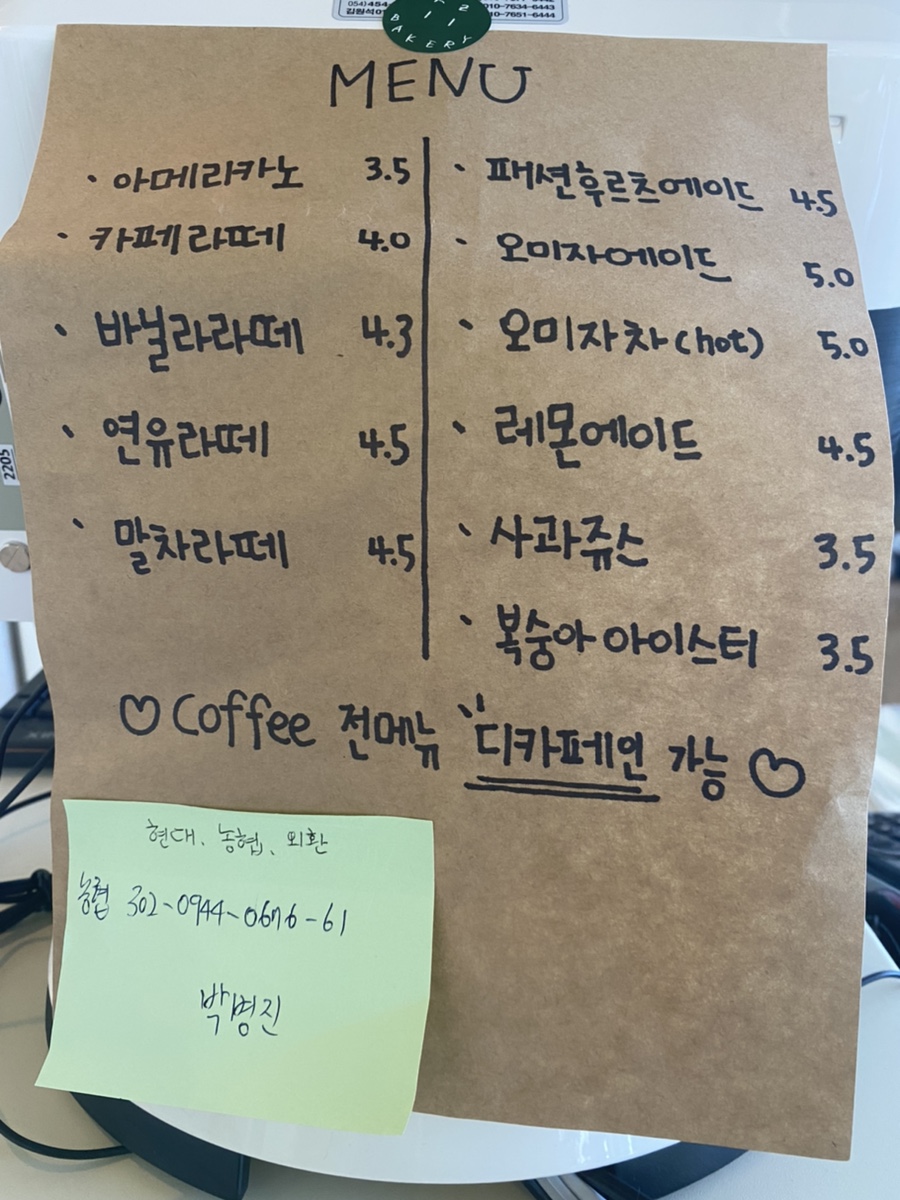 010-7634-6443
010-7651-6444
BAKERY
MENU
· 아메리카노 3.5
· 카페라떼 4.0
· 바닐라라떼 4.3
· 연유라떼 4.5
· 말차라떼 4.5
· 패션후르츠에이드 4.5
· 오미자에이드 5.0
· 오미자차(hot) 5.0
· 레몬에이드 4.5
· 사과쥬스 3.5
· 복숭아 아이스티 3.5
♡ Coffee 전메뉴 디카페인 가능 ♡
현대、농협、외환
농협 302-0944-0676-61
박병진
2205